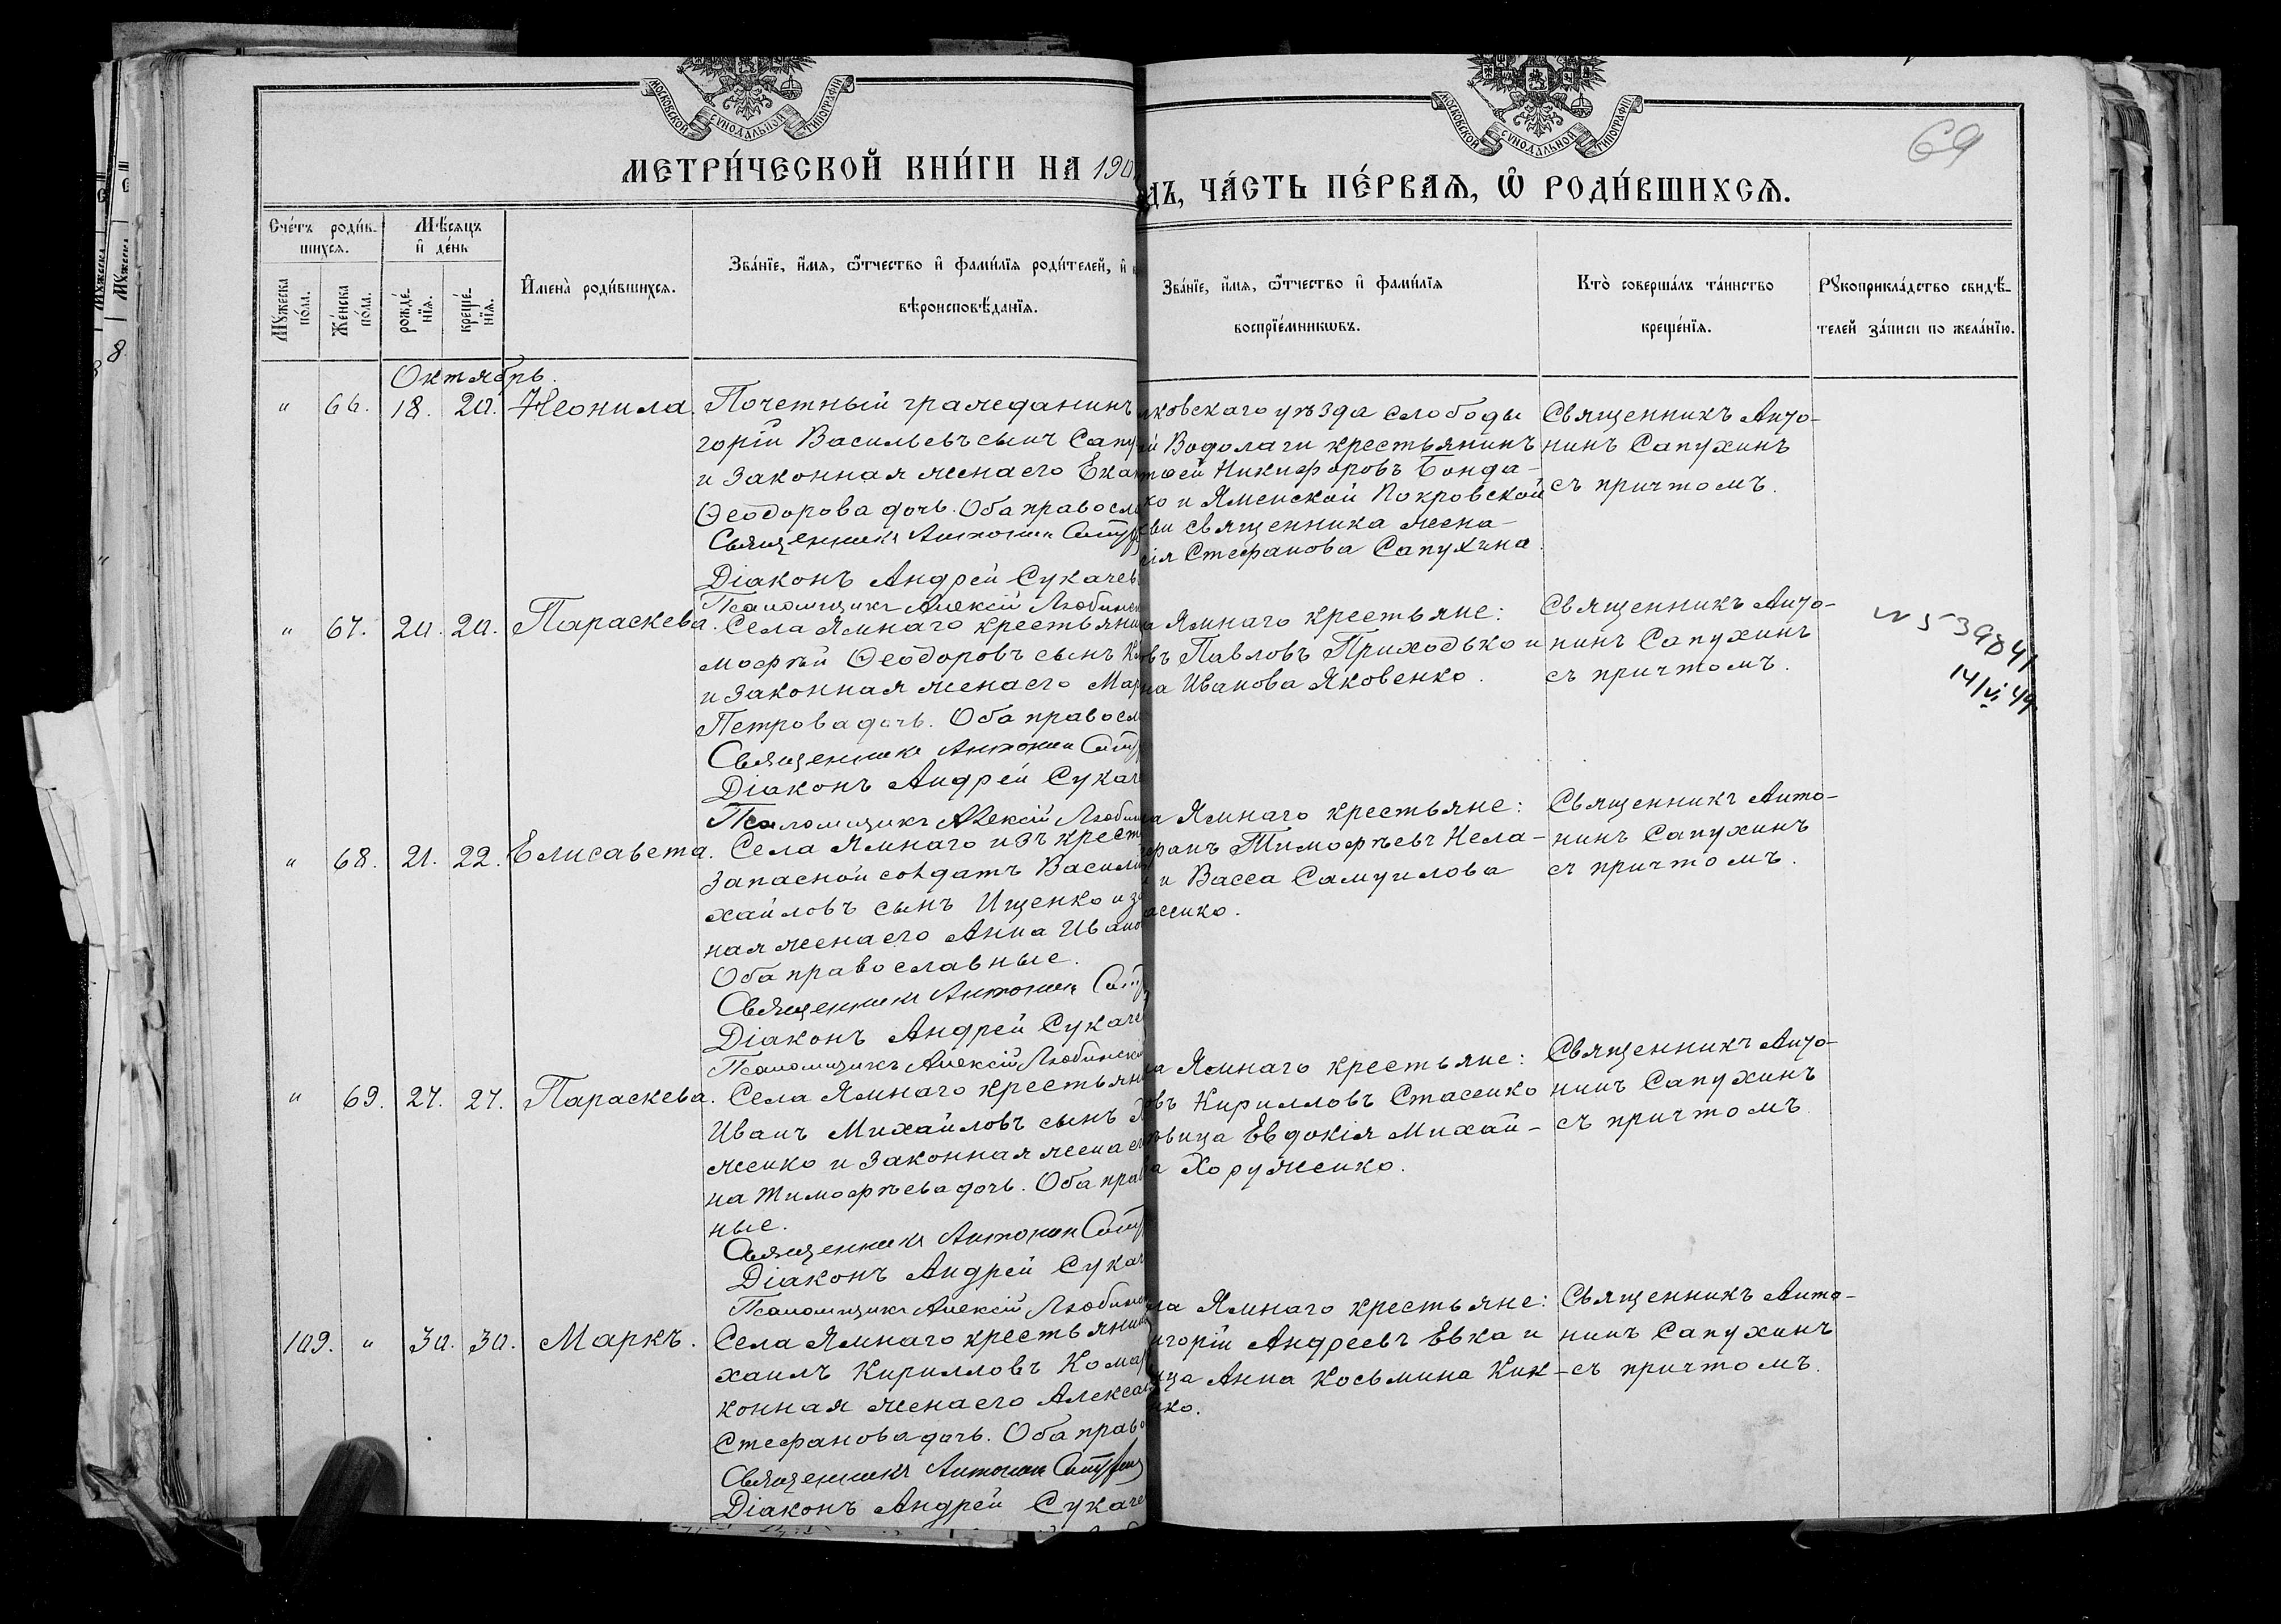 МОСКОВСКОЙ СѴНОДАЛЬНОЙ ТИПОГРАФІИ
МОСКОВСКОЙ СѴНОДАЛЬНОЙ ТИПОГРАФІИ
69
МЕТРИ́ЧЕСКОЙ КНИ́ГИ НА 190
ДЪ, ЧА́СТЬ ПЕ́РВАѦ, Ѡ҆ РОДИ́ВШИХСѦ.
Сче́тъ роди́в-
шихсѧ.
Мѣ́сѧцъ
и҆ де́нь
Мꙋ́жеска
по́ла.
Же́нска
по́ла.
рожде́-
нїѧ.
креще́-
нїѧ.
И҆мена̀ роди́вшихсѧ.
Зва́нїе, и҆́мѧ, ѻ҆́тчество и҆ фами́лїѧ роди́телей, и҆
вѣроисповѣ́данїѧ.
Зва́нїе, и҆́мѧ, ѻ҆́тчество и҆ фами́лїѧ
воспрїе́мникѡвъ.
Кто̀ соверша́лъ та́инство
креще́нїѧ.
Рꙋкоприкла́дство свидѣ́-
телей за́писи по жела́нїю.
Октябрь.
" 66. 18. 20. Неонила. Почетный гражданинъ
горій Васильевъ сынъ Сапу
и законная жена его Ека
Ѳеодорова дочь. Оба правосла
Священникъ Антонин Сапу
Діаконъ Андрей Сукачев
Псаломщикъ Алексій Любинск
ковскаго уѣзда слободы
й Водолаги крестьянинъ
ѳей Никифоровъ Бонда-
ко и Яменской Покровской
кви священника жена
сія Стефанова Сапухина.
Священникъ Анто-
нинъ Сапухинъ
съ причтомъ.
" 67. 20. 20. Параскева. Села Ямнаго крестьянин
моѳей Ѳеодоровъ сынъ
и законная жена его Мар
Петрова дочь. Оба правосл
Священникъ Антонин Сапу
Діаконъ Андрей Сукач
Псаломщикъ Алексій Любин
а Ямнаго крестьяне:
овъ Павловъ Приходько и
на Иванова Яковенко.
Священникъ Анто-
нинъ Сапухинъ
съ причтомъ.
N 539841
14/VI 44
" 68. 21. 22. Елисавета. Села Ямнаго изъ крест
запасной солдатъ Васили
хайловъ сынъ Ищенко и за
ная жена его Анна Ивано
Оба православные.
Священникъ Антонин Сапу
Діаконъ Андрей Сукаче
Псаломщикъ Алексій Любинскі
а Ямнаго крестьяне:
ефанъ Тимофѣевъ Кела-
и Васса Самуилова
асенко.
Священникъ Анто-
нинъ Сапухинъ
съ причтомъ.
" 69. 27. 27. Параскева. Села Ямнаго крестьян
Иванъ Михайловъ сынъ
женко и законная жена ег
на Тимофѣева дочь. Оба прав
ные.
Священникъ Антонин Сапу
Діаконъ Андрей Сукач
Псаломщикъ Алексій Любинс
а Ямнаго крестьяне:
овъ Кирилловъ Стасенко
ѣвица Евдокія Михай-
а Хоруженко.
Священникъ Анто-
нинъ Сапухинъ
съ причтомъ
109. " 30. 30. Маркъ. Села Ямнаго крестьянин
хаилъ Кирилловъ Кома
конная жена его Алекса
Стефанова дочь. Оба право
Священникъ Антонин Сапухин
Діаконъ Андрей Сукаче
ла Ямнаго крестьяне:
игорій Андреевъ Евка и
ица Анна Косьмина Кик-
нко.
Священникъ Анто-
нинъ Сапухинъ
съ причтомъ.